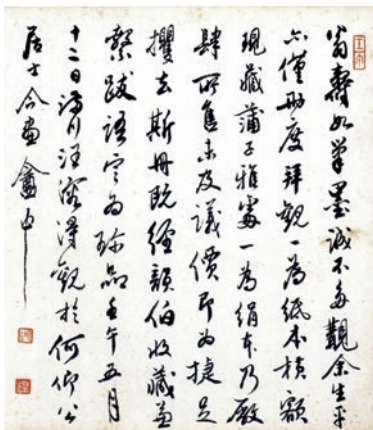 翁壽如筆墨誠不多觀余生平
亦僅兩度拜觀一為紙本橫額
現藏蒲子雅處一為絹本乃廠
肆所售未及議價即為捷足
攫去斯冊既經韻伯收藏並
繫跋語定為珍品壬午五月
十二日潯川汪溶得觀於何仰公
居士今畫盦中